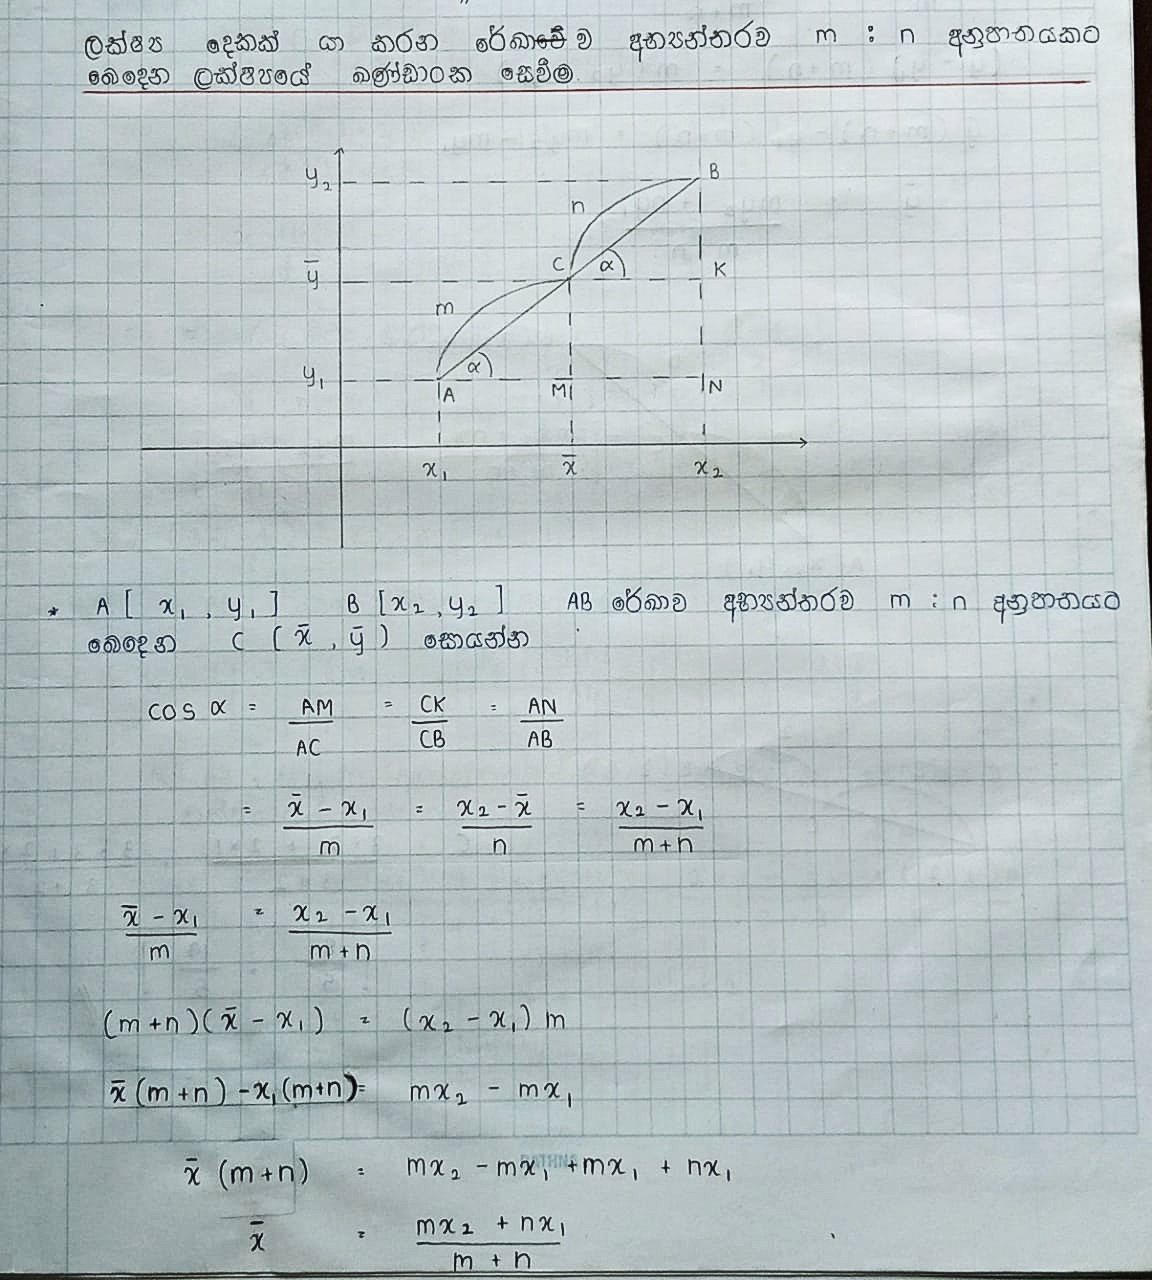 ලක්ෂ්‍ය දෙකක් යා කරන රේඛාව අභ්‍යන්තරව m : n අනුපාතයකට
බෙදෙන ලක්ෂ්‍යයේ ඛණ්ඩාංක සෙවීම.
y₂
B
n
ȳ
C
α
K
m
y₁
α
A
M
N
x₁
x̄
x₂
* A [ x₁ , y₁ ] B [ x₂ , y₂ ] AB රේඛාව අභ්‍යන්තරව m : n අනුපාතයට
බෙදෙන C ( x̄ , ȳ ) සොයන්න
cos α = AM/AC = CK/CB = AN/AB
= (x̄ - x₁)/m = (x₂ - x̄)/n = (x₂ - x₁)/(m+n)
(x̄ - x₁)/m = (x₂ - x₁)/(m+n)
(m+n)(x̄ - x₁) = (x₂ - x₁) m
x̄ (m+n) - x₁(m+n) = mx₂ - mx₁
x̄ (m+n) = mx₂ - mx₁ + mx₁ + nx₁
x̄ = (mx₂ + nx₁)/(m + n)